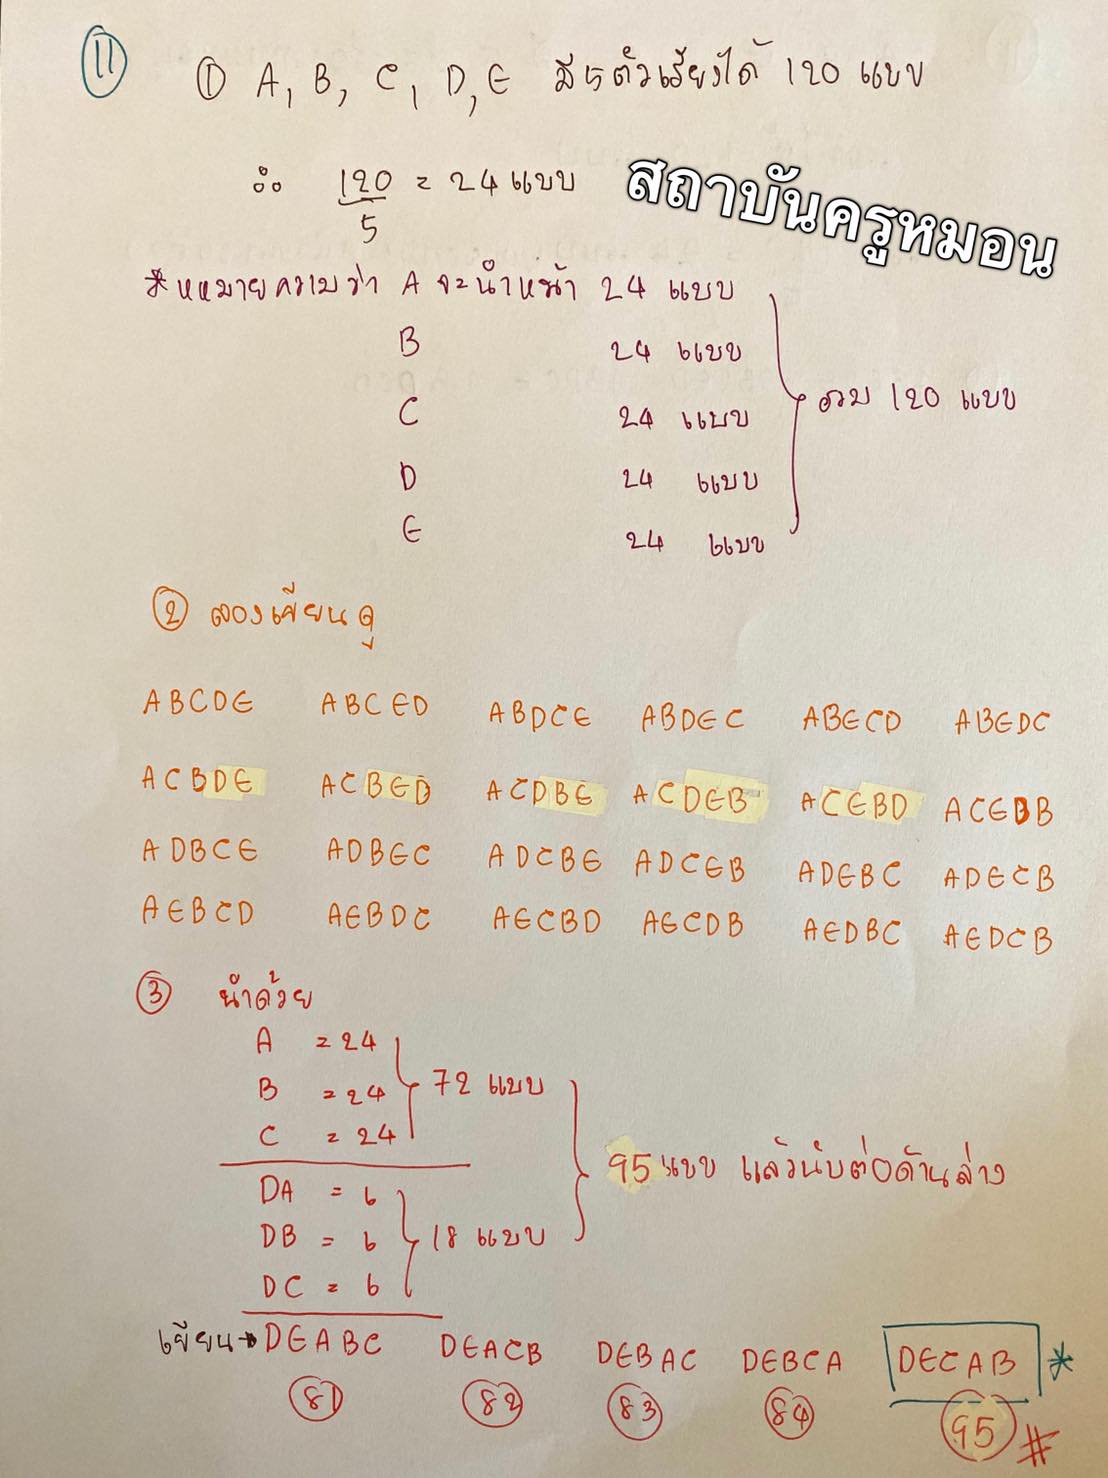 11
① A, B, C, D, E มี 5 ตัวเรียงได้ 120 แบบ
∴ 120/5 = 24 แบบ
สถาบันครูหมอน
*หหมายความว่า A จะนำหน้า 24 แบบ
B 24 แบบ
C 24 แบบ
D 24 แบบ
E 24 แบบ
รวม 120 แบบ
② ลองเขียนดู
ABCDE ABCED ABDCE ABDEC ABECD ABEDC
ACBDE ACBED ACDBE ACDEB ACEBD ACEDB
ADBCE ADBEC ADCBE ADCEB ADEBC ADECB
AEBCD AEBDC AECBD AECDB AEDBC AEDCB
③ นำด้วย
A = 24
B = 24
C = 24
72 แบบ
DA = 6
DB = 6
DC = 6
18 แบบ
95 แบบ แล้วนับต่อด้านล่าง
เขียน→ DEABC DEACB DEBAC DEBCA DECAB *
81 82 83 84 95 #